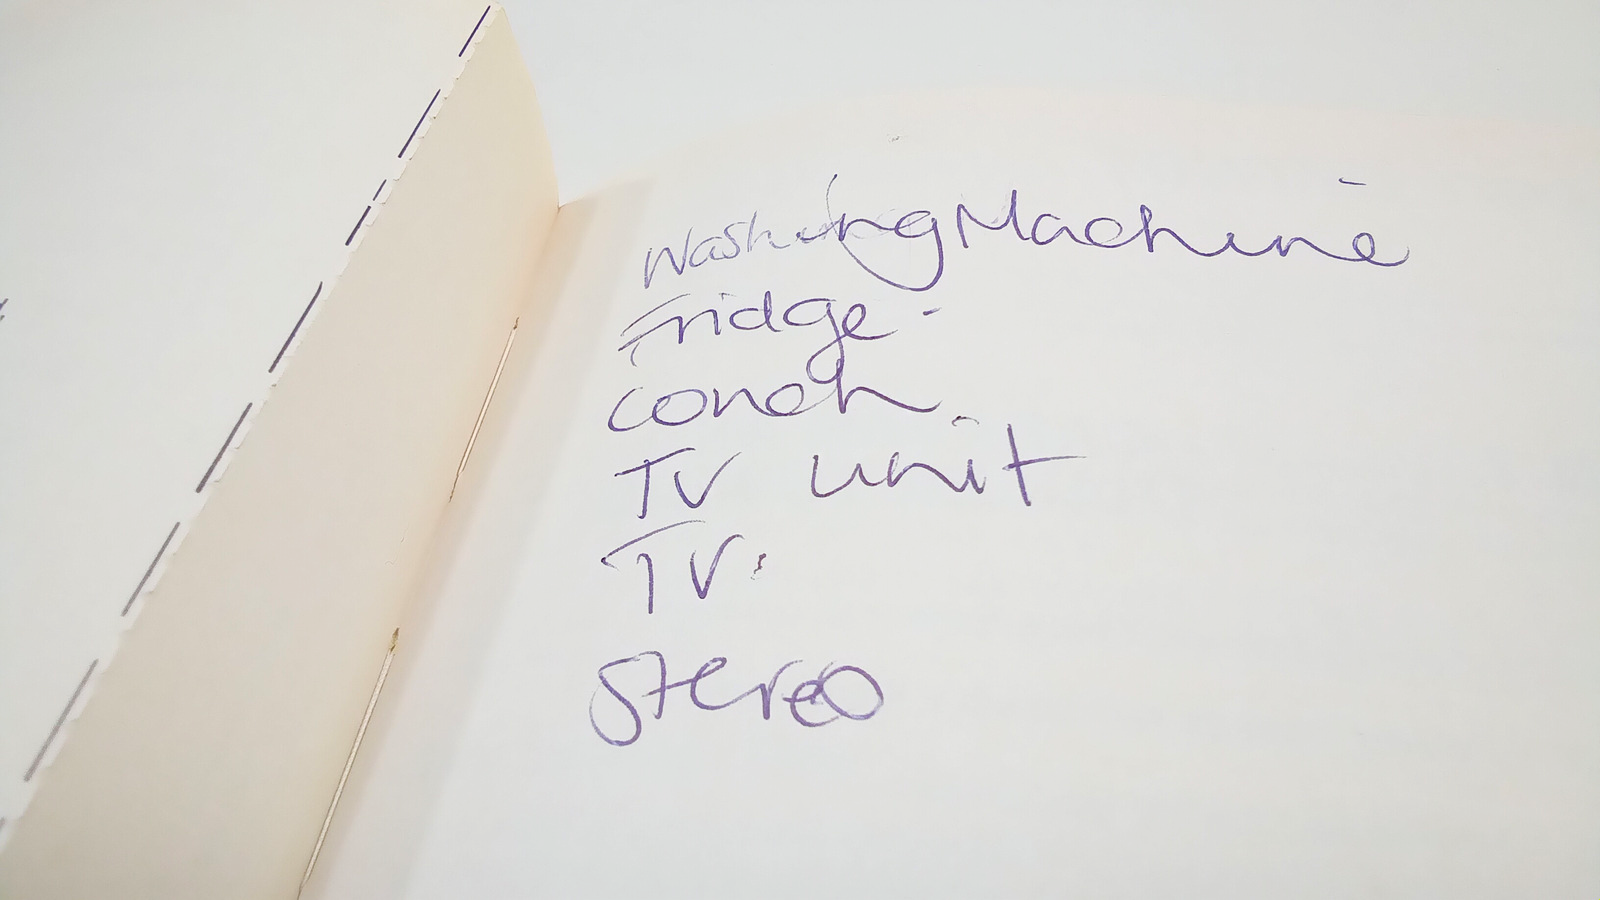 Washing Machine
Fridge -
couch
TV unit
TV
stereo